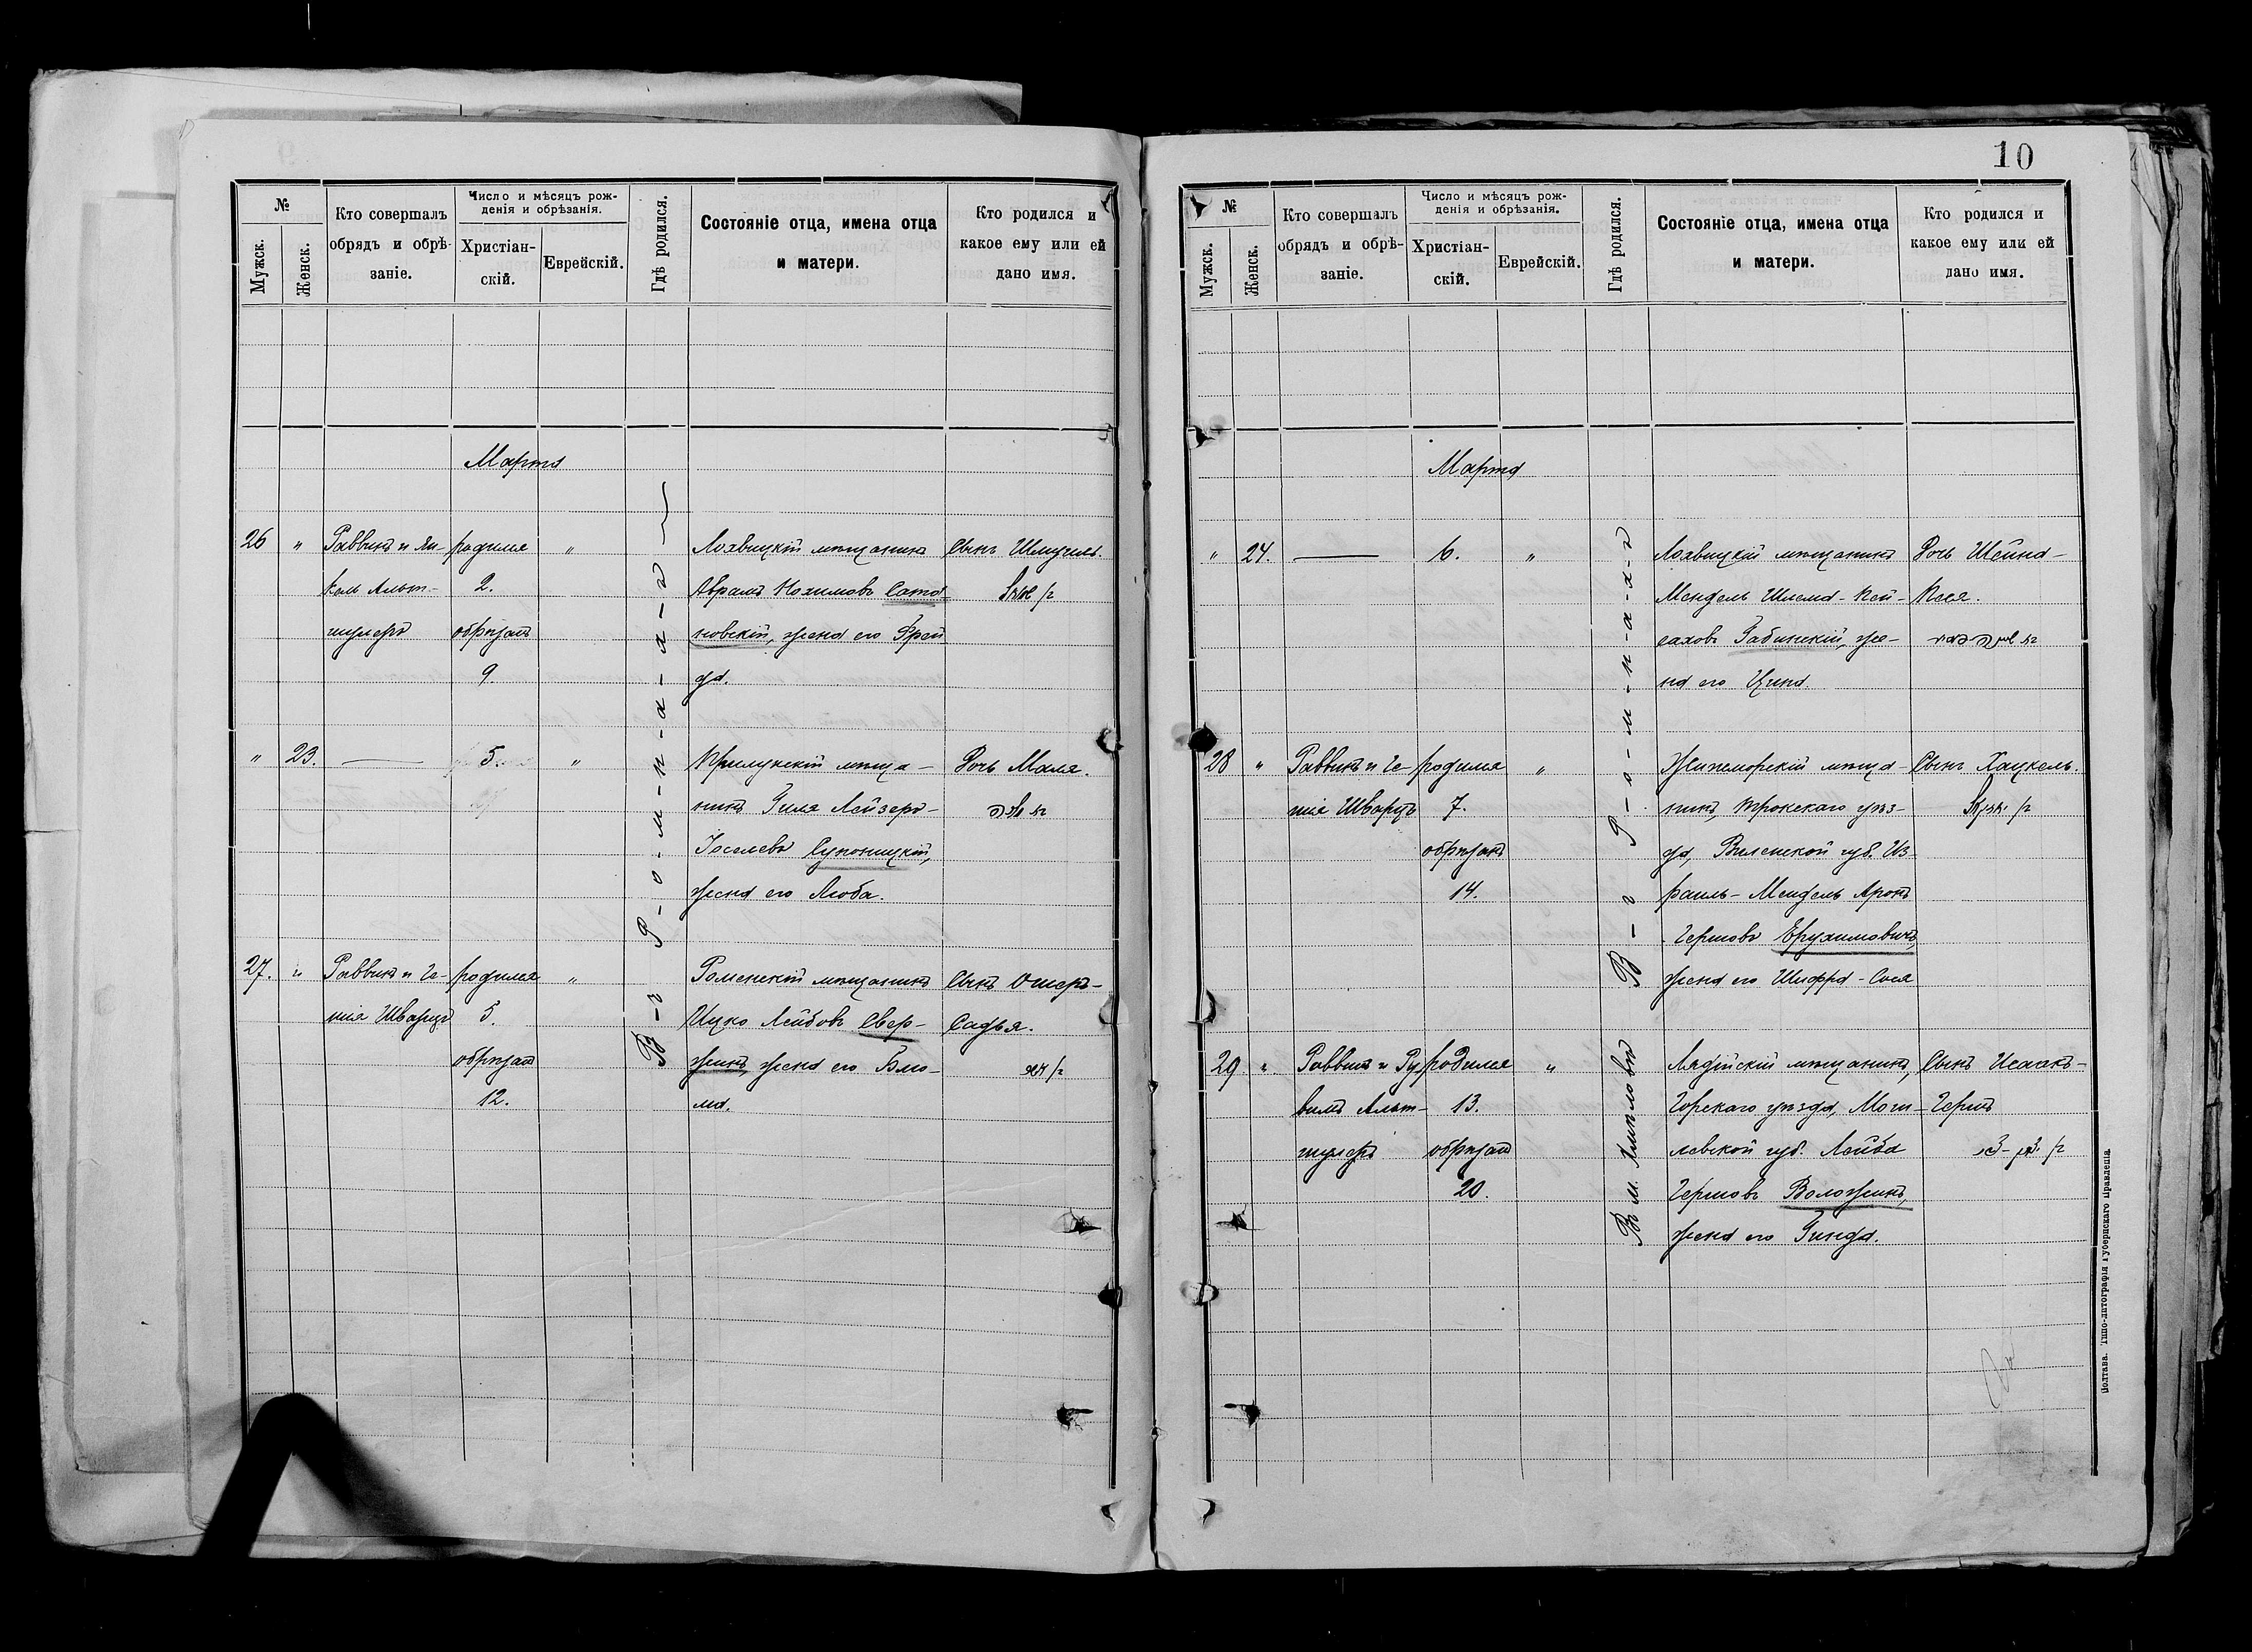 №
Мужск.
Женск.
Кто совершалъ
обрядъ и обрѣ-
заніе.
Число и мѣсяцъ рож-
денія и обрѣзанія.
Христіан-
скій.
Еврейскій.
Гдѣ родился.
Состояніе отца, имена отца
и матери.
Кто родился и
какое ему или ей
дано имя.
Марта
26 " Раввинъ и Ян-
кель Альт-
шулеръ
родился
2.
обрѣзанъ
9.
"
Лохвицкій мѣщанинъ
Абрамъ Нохимовъ Сата-
новскій, жена его Фрей
да.
Сынъ Шмуиль.
" 23. —
5.
"
Прилукскій мѣща-
нинъ Гиля Лейзеръ-
Іоселевъ Супоницкій,
жена его Люба.
Дочь Маля.
27. " Раввинъ и Ге-
шія Шварцъ
родился
5.
обрѣзанъ
12.
"
Роменскій мѣщанинъ
Ицко Лейбовъ Свер-
жинъ, жена его Блю-
ма.
Сынъ Ошеръ-
Садья.
В-ъ Р-о-м-н-а-х-ъ
10
№
Мужск.
Женск.
Кто совершалъ
обрядъ и обрѣ-
заніе.
Число и мѣсяцъ рож-
денія и обрѣзанія.
Христіан-
скій.
Еврейскій.
Гдѣ родился.
Состояніе отца, имена отца
и матери.
Кто родился и
какое ему или ей
дано имя.
Марта
" 24. —
6.
"
Лохвицкій мѣщанинъ
Мендель Шлема-Пей-
саховъ Габинскій, же-
на его Ципа.
Дочь Шейна-
Песя.
28 " Раввинъ и Ге-
шія Шварцъ
родился
7.
обрѣзанъ
14.
"
Жижморскій мѣща-
нинъ, Трокскаго уѣз-
да, Виленской губ. Из-
раиль-Мендель Аронъ
Гершовъ Ерухимовичъ,
жена его Шифра-Сося
Сынъ Хацкель.
В-ъ Р-о-м-н-а-х-ъ
29 " Раввинъ и Ру-
вимъ Альт-
шулеръ
родился
13.
обрѣзанъ
20.
"
Лядійскій мѣщанинъ,
Горскаго уѣзда, Моги-
левской губ. Лейба
Гершовъ Воложинъ,
жена его Гинда.
Сынъ Исаакъ-
Гершъ
Въ м.
Полтава. Типо-литографія Губернскаго Правленія.